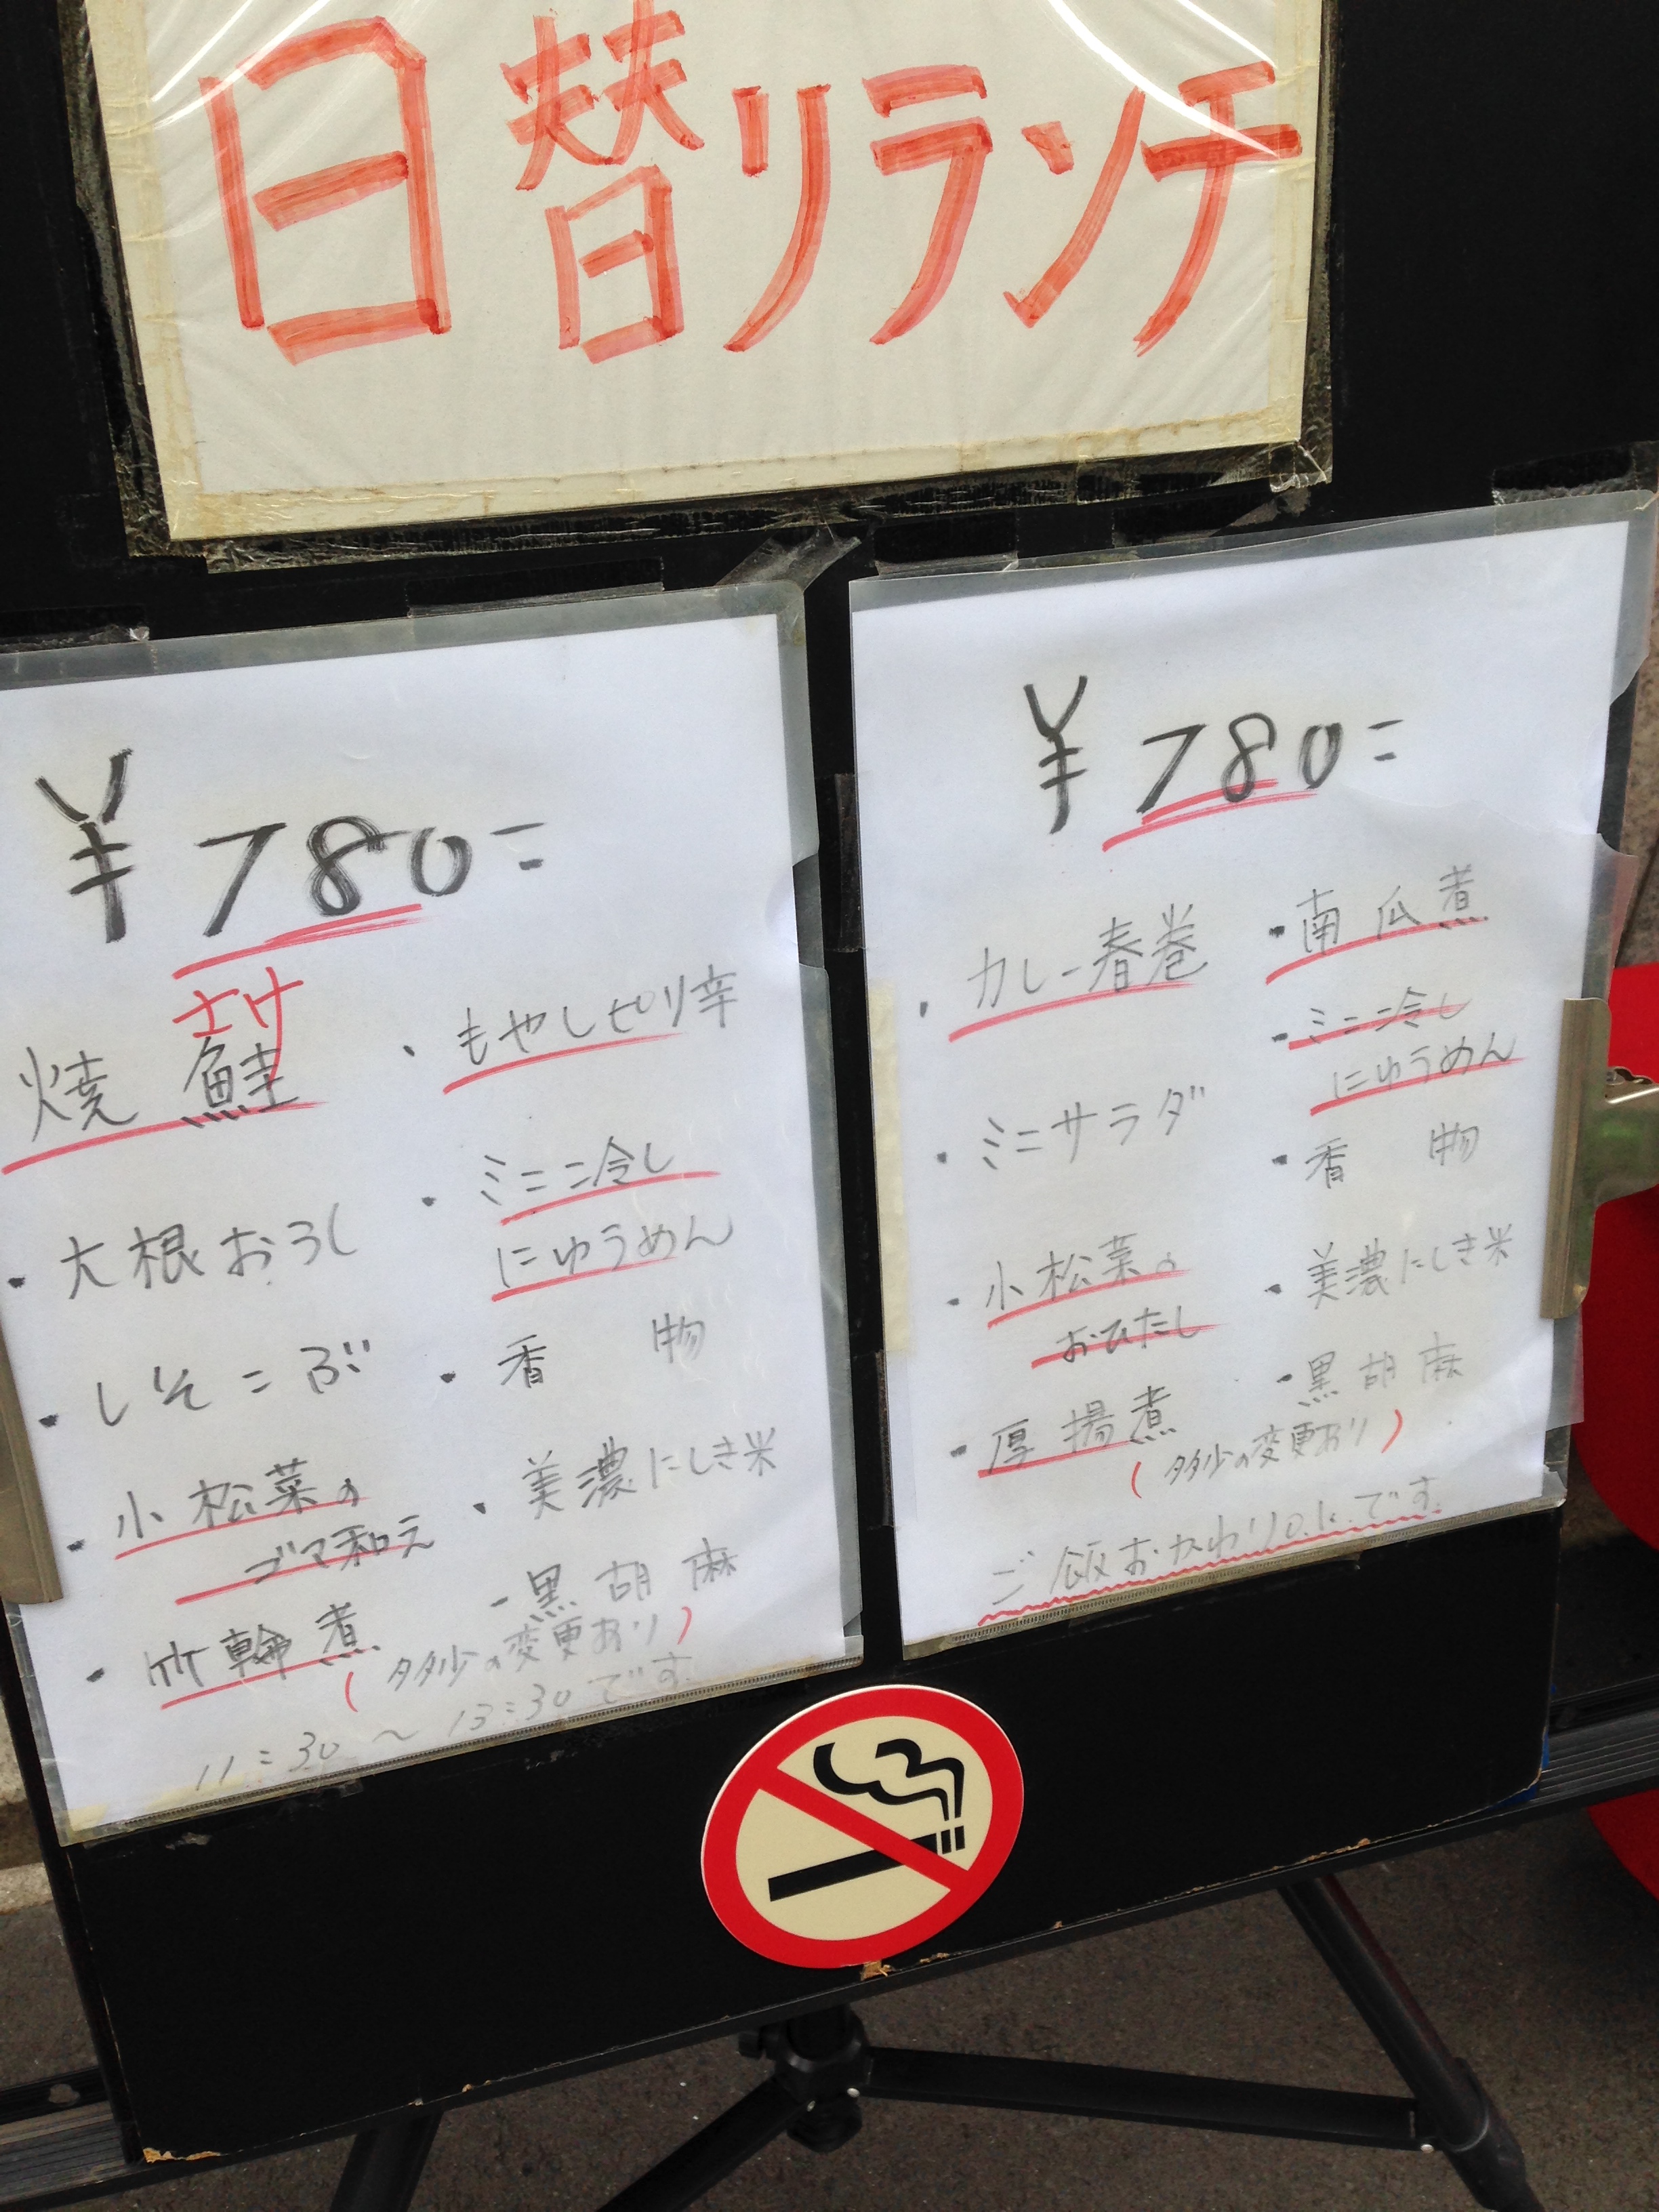 日替リランチ
¥780=
さけ
焼鮭
・大根おろし
・しそこぶ
・小松菜の
ゴマ和え
・竹輪煮
・もやしピリ辛
・ミニ冷し
にゅうめん
・香物
・美濃にしき米
・黒胡麻
(多少の変更あり)
11:30～13:30です
¥780=
・カレー春巻
・ミニサラダ
・小松菜の
おひたし
・厚揚煮
・南瓜煮
・ミニ冷し
にゅうめん
・香物
・美濃にしき米
・黒胡麻
(多少の変更あり)
ご飯おかわりO.K.です